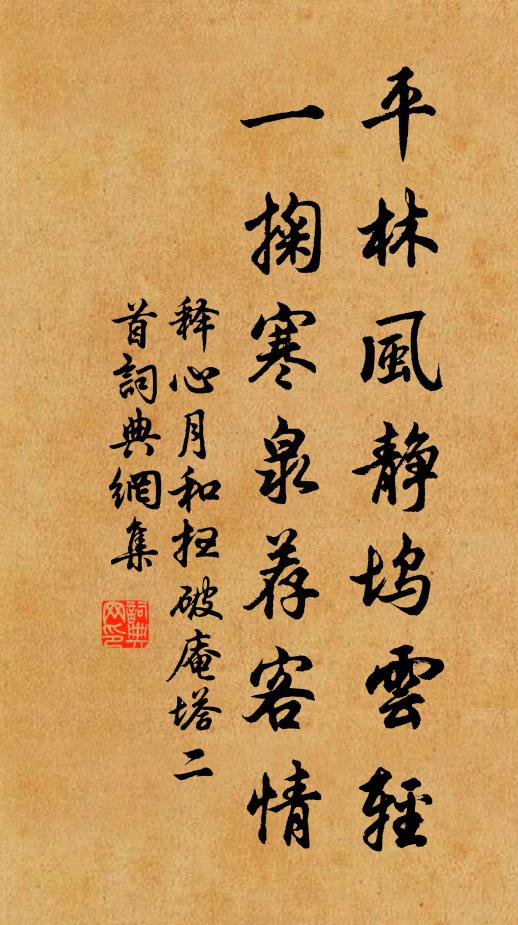 平林風静塢雲輕
一掬寒泉荐客情
释心月和抂破庵塔二
首詞典網集
詞典网印